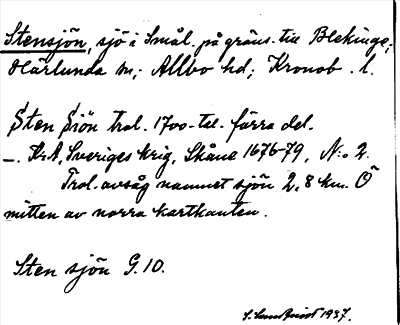 Stensjön, sjö i Smål. på gräns. till Blekinge;
Härlunda sn; Allbo hd; Kronob. l.
Sten Siön trol. 1700-tal. förra del.
–. KrA, Sveriges krig, Skåne 1676-79, N:o 2.
Trol. avsåg namnet sjön 2,8 km. Ö
mitten av norra kartkanten.
Sten sjön G.10.
1937.